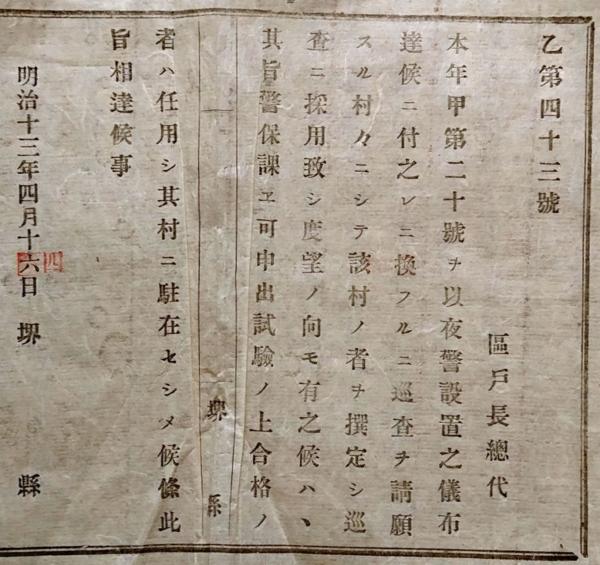 乙第四十三號
區戸長總代
本年甲第二十號ヲ以夜警設置之儀布
達候ニ付之レニ換フルニ巡査ヲ請願
スル村々ニシテ該村ノ者ヲ撰定シ巡
査ニ採用致シ度望ノ向モ有之候ハヽ
其旨警保課ヱ可申出試驗ノ上合格ノ
堺縣
者ハ任用シ其村ニ駐在セシメ候條此
旨相達候事
明治十三年四月十六日 堺縣
四